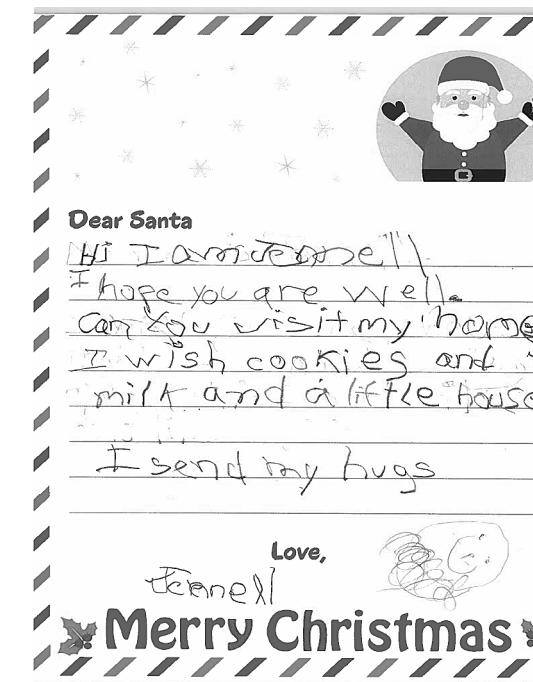 Dear Santa
Hi I am Jennell
I hope you are well.
Can You visit my home
I wish cookies and
milk and a little house
I send my hugs
Love,
Jennell
Merry Christmas